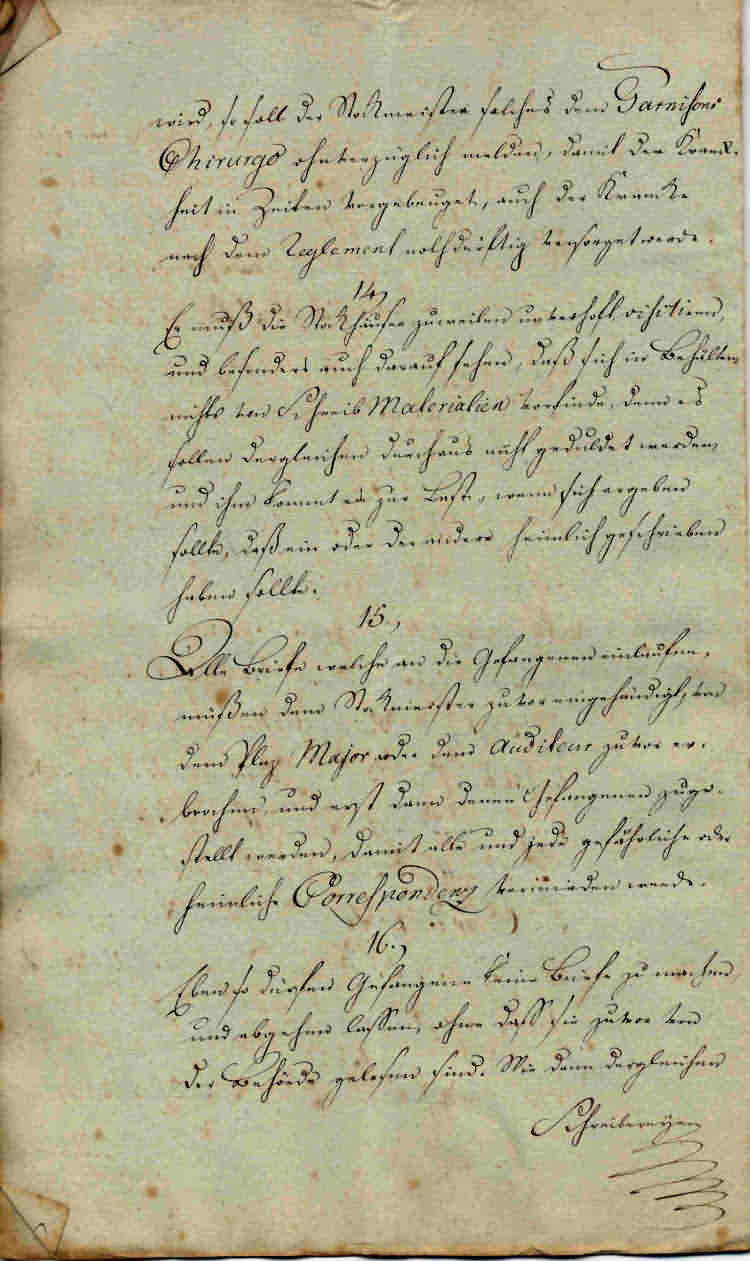 wird, so soll der Stockmeister solches dem Garnisons
Chirurgo ohnverzüglich melden, damit der Kranck-
heit in Zeiten vorgebeuget, auch der Krancke
nach dem Reglement nothdürftig versorget werde.
14,
Er muß die Stockhäuser zuweilen unverhoft visitiren,
und besonders auch darauf sehen, daß sich in Behältern
nichts von Schreib Materialien vorfinde, denn es
sollen dergleichen durchaus nicht geduldet werden,
und ihm kommt es zur Last, wenn sich ergeben
sollte, daß ein oder der andere heimlich geschrieben
haben sollte.
15.,
Alle Briefe welche an die Gefangenen einlaufen,
müßen dem Stockmeister zuvor eingehändigt, von
dem Plaz Major oder dem Auditeur zuvor er-
brochen, und erst dann denen Gefangenen zuge-
stellt werden, damit alle und jede gefährliche oder
heimliche Correspondenz vermieden werde.
16.,
Eben so dürfen Gefangene keine Briefe zu machen,
und abgehen lassen, ohne dass sie zuvor von
der Behörde gelesen sind. Wie denn dergleichen
Schreibereyen